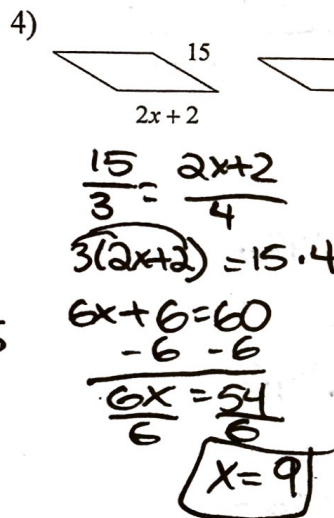 4)
15
2x + 2
15/3 = 2x+2/4
3(2x+2) = 15·4
6x+6=60
-6 -6
6x/6 = 54/6
x=9